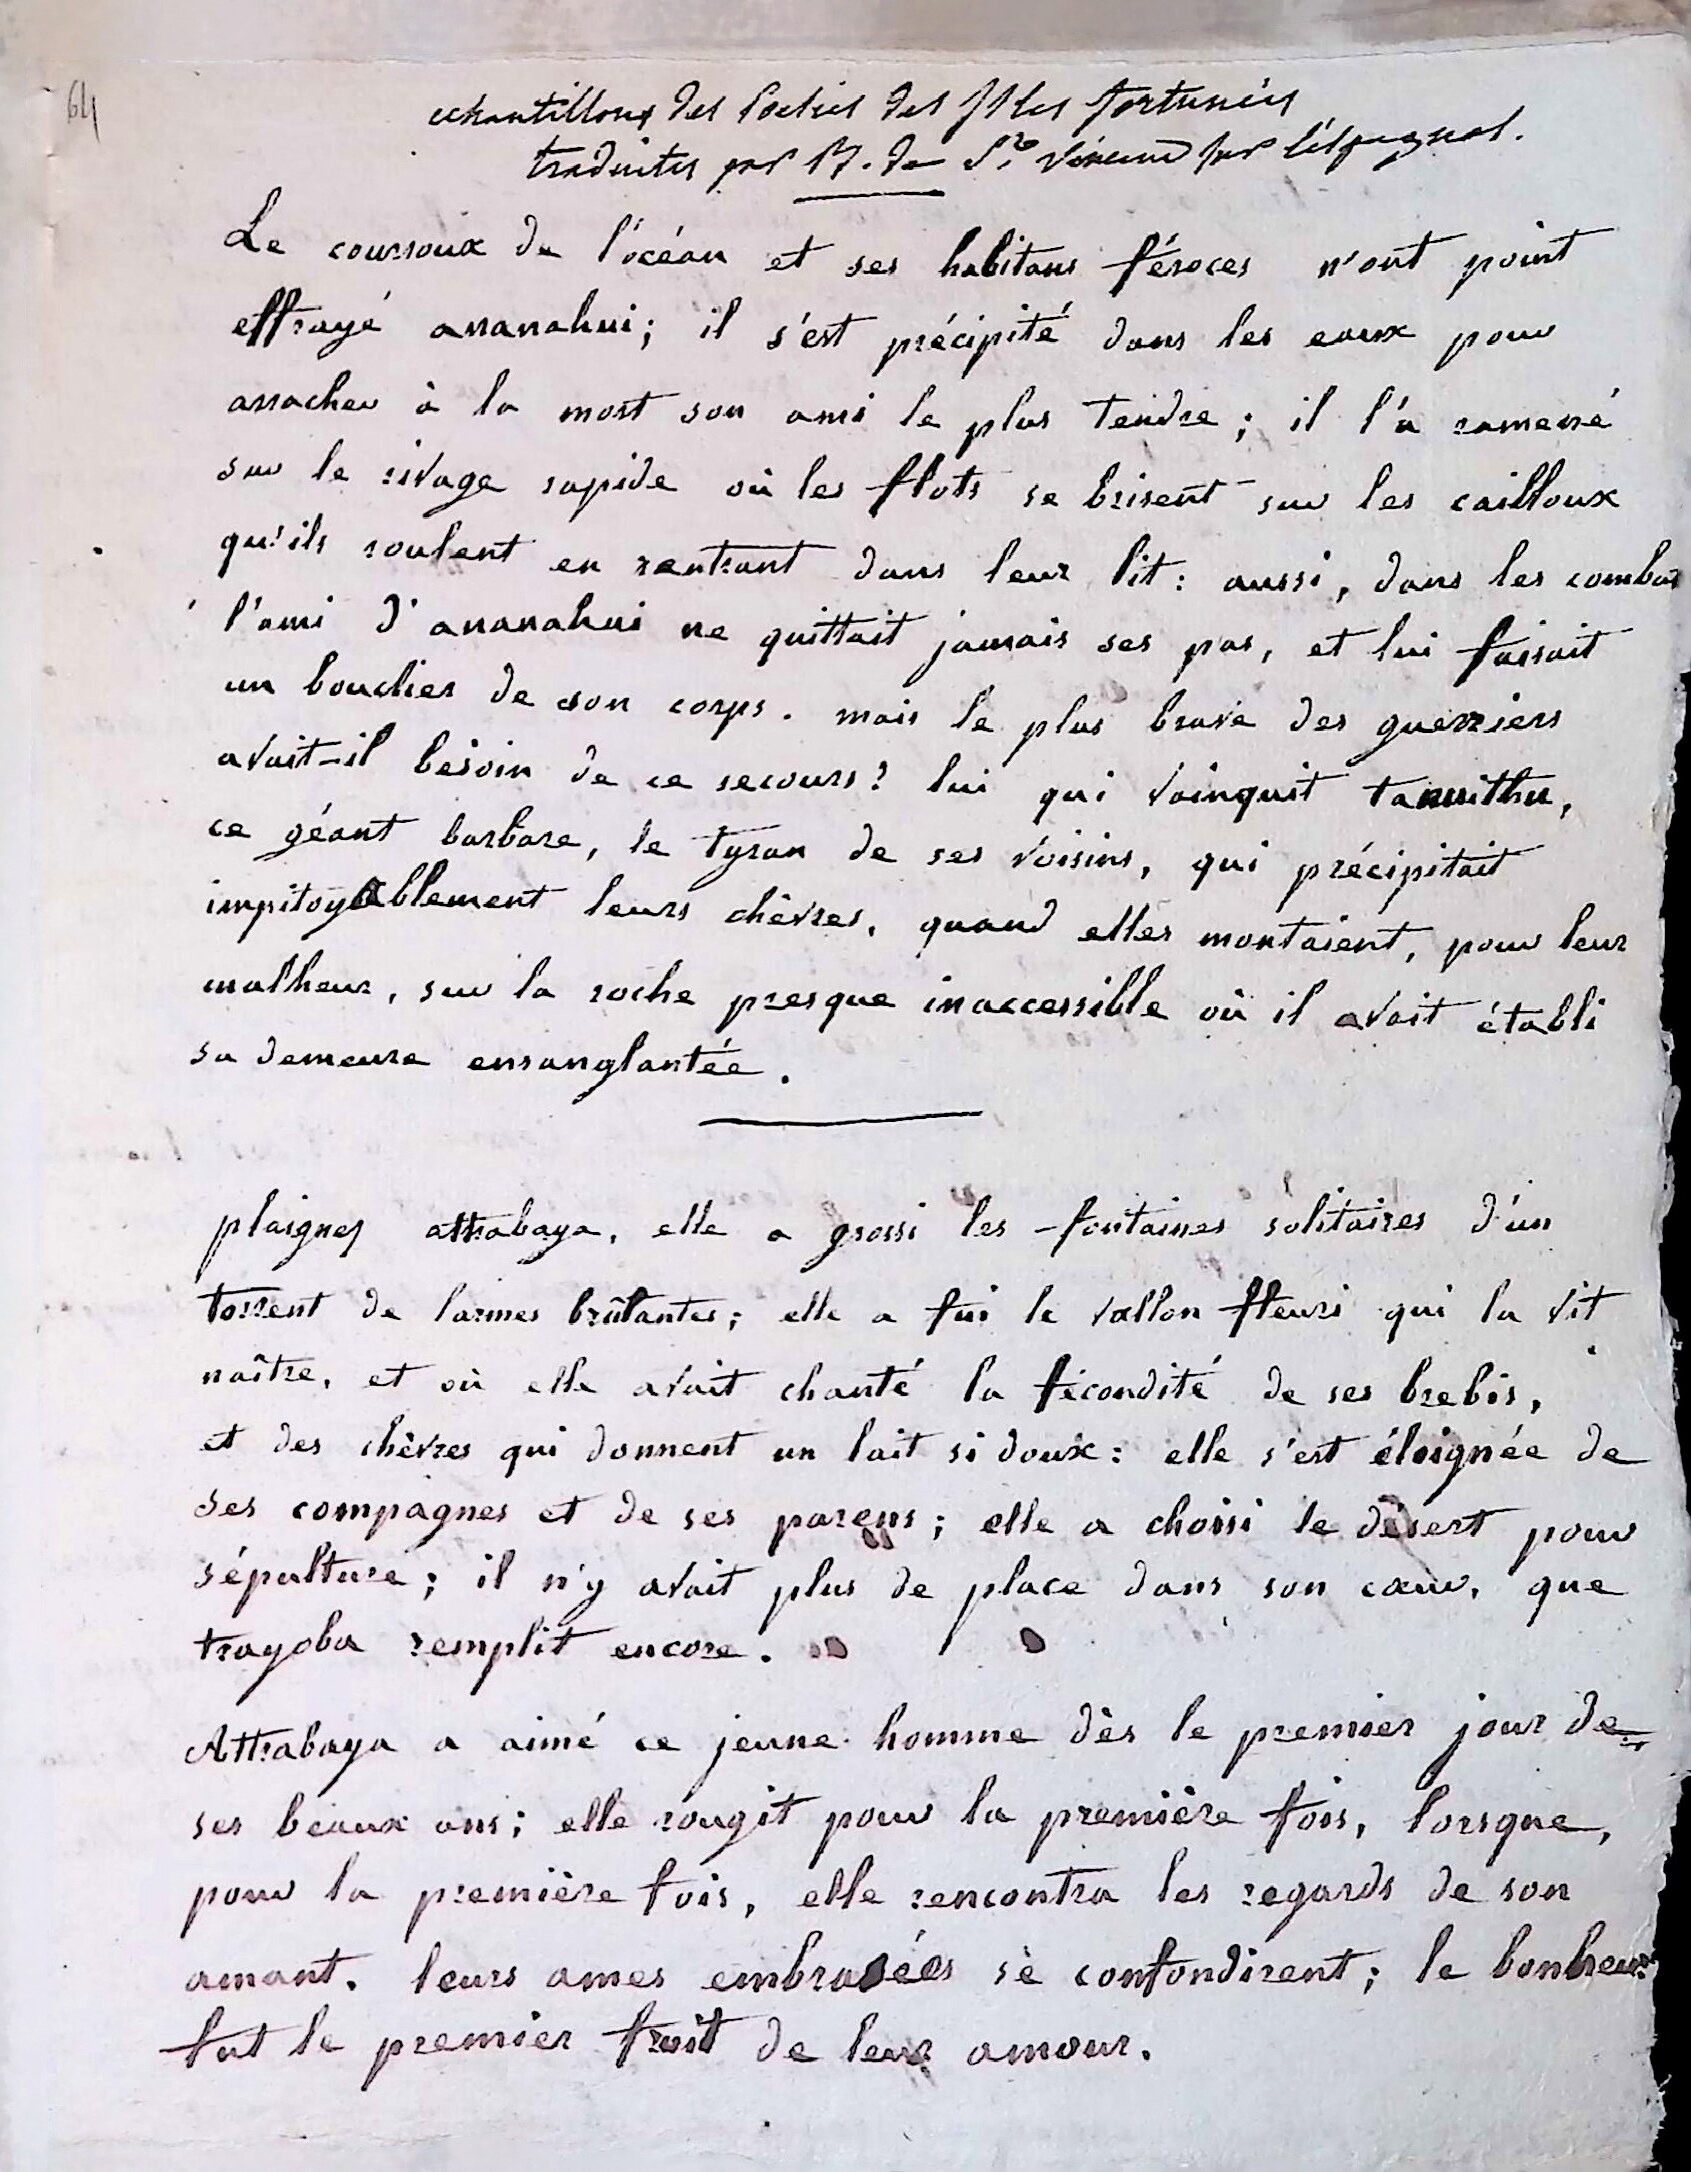 64
echantillons des Poesies des Isles fortunées
traduites par M. de St. Vincent sur l'éspagnol.
Le courroux de l'océan et ses habitans féroces n'ont point
effrayé ananahui; il s'est précipité dans les eaux pour
arracher à la mort son ami le plus tendre; il l'a ramené
sur le rivage rapide où les flots se brisent sur les cailloux
qu'ils roulent en rentrant dans leur lit: aussi, dans les combas
l'ami d'ananahui ne quittait jamais ses pas, et lui faisait
un bouclier de son corps. mais le plus brave des guerriers
avait-il besoin de ce secours? lui qui vainquit tanuithu,
ce géant barbare, le tyran de ses voisins, qui précipitait
impitoyablement leurs chèvres, quand elles montaient, pour leur
malheur, sur la roche presque inaccessible où il avait établi
sa demeure ensanglantée.
plaignez attrabaya, elle a grossi les fontaines solitaires d'un
torrent de larmes brûlantes; elle a fui le vallon fleuri qui la vit
naître, et où elle avait chanté la fécondité de ses brebis,
et des chèvres qui donnent un lait si doux: elle s'est éloignée de
ses compagnes et de ses parens; elle a choisi le désert pour
sépulture; il n'y avait plus de place dans son cœur, que
trayoba remplit encore.
Attrabaya a aimé ce jeune homme dès le premier jour de
ses beaux ans; elle rougit pour la première fois, lorsque,
pour la première fois, elle rencontra les regards de son
amant. leurs ames embrasées se confondirent; le bonheur
fut le premier fruit de leur amour.